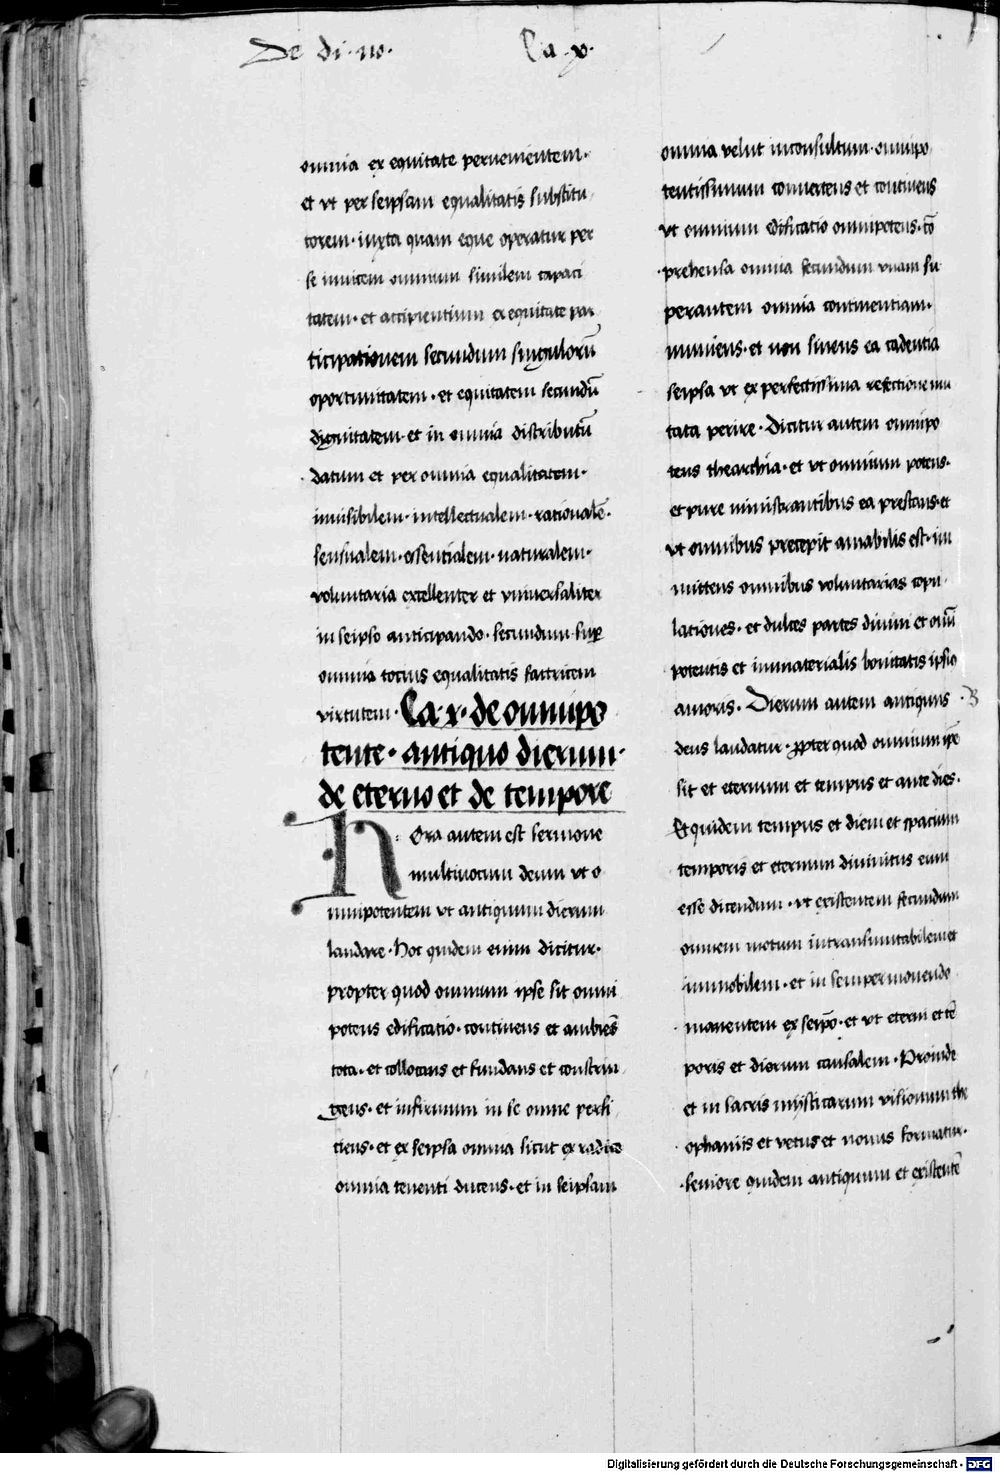 De di. no. Ca. x.
omnia ex equitate pervenientem.
et vt per seipsam equalitatis substitu
torem. iuxta quam eque operatur per
se invicem omnium similem capaci
tatem. et accipientium ex equitate par
ticipationem secundum singulorū
oportunitatem. et equitatem secundū
dignitatem. et in omnia distributū
datum et per omnia equalitatem.
invisibilem. intellectualem. rationalē.
sensualem. essentialem. naturalem.
voluntaria excellenter et vniversaliter
in seipso anticipando. secundum sup̄
omnia tocius equalitatis factricem
virtutem. Ca. x. de omnipo
tente. antiquo dierum.
de eterno et de tempore
Hora autem est sermone
multivocum deum vt o
mnipotentem vt antiquum dierum
laudare. Hoc quidem enim dicitur.
propter quod omnium ipse sit omni
potens edificatio. continens et ambiēs
tota. et collocans et fundans et constrin
gens. et infirmum in se omne perfi
ciens. et ex seipsa omnia sicut ex radice
omnia tenenti ducens. et in seipsam
omnia velut inconsultum. omnipo
tentissimum convertens et continens
vt omnium edificatio omnipotens. cō
prehensa omnia secundum vnam su
perantem omnia continentiam.
muniens. et non sinens ea cadentia
seipsa vt ex perfectissima refectione mu
tata perire. Dicitur autem omnipo
tens thearchia. et vt omnium potens.
et pure ministrantibus ea prestans. et
vt omnibus precepit amabilis est. im
mittens omnibus voluntarias copu
lationes. et dulces partes divini et omī
potentis et immaterialis bonitatis ipsius
amoris. Dierum autem antiquus
. B
deus laudatur. propter quod omnium ipē
sit et eternum et tempus et ante dies.
Et quidem tempus et diem et spacium
temporis et eternum divinitus eum
esse dicendum. vt existentem secundum
omnem motum intransmutabilem et
immobilem. et in semper movendo
manentem ex seipō. et vt eterni et tē
poris et dierum causalem. Proinde
et in sacris mysticarum visionum the
ophaniis et vetus et novus formatur.
seniore quidem antiquum et existentē
Digitalisierung gefördert durch die Deutsche Forschungsgemeinschaft - DFG